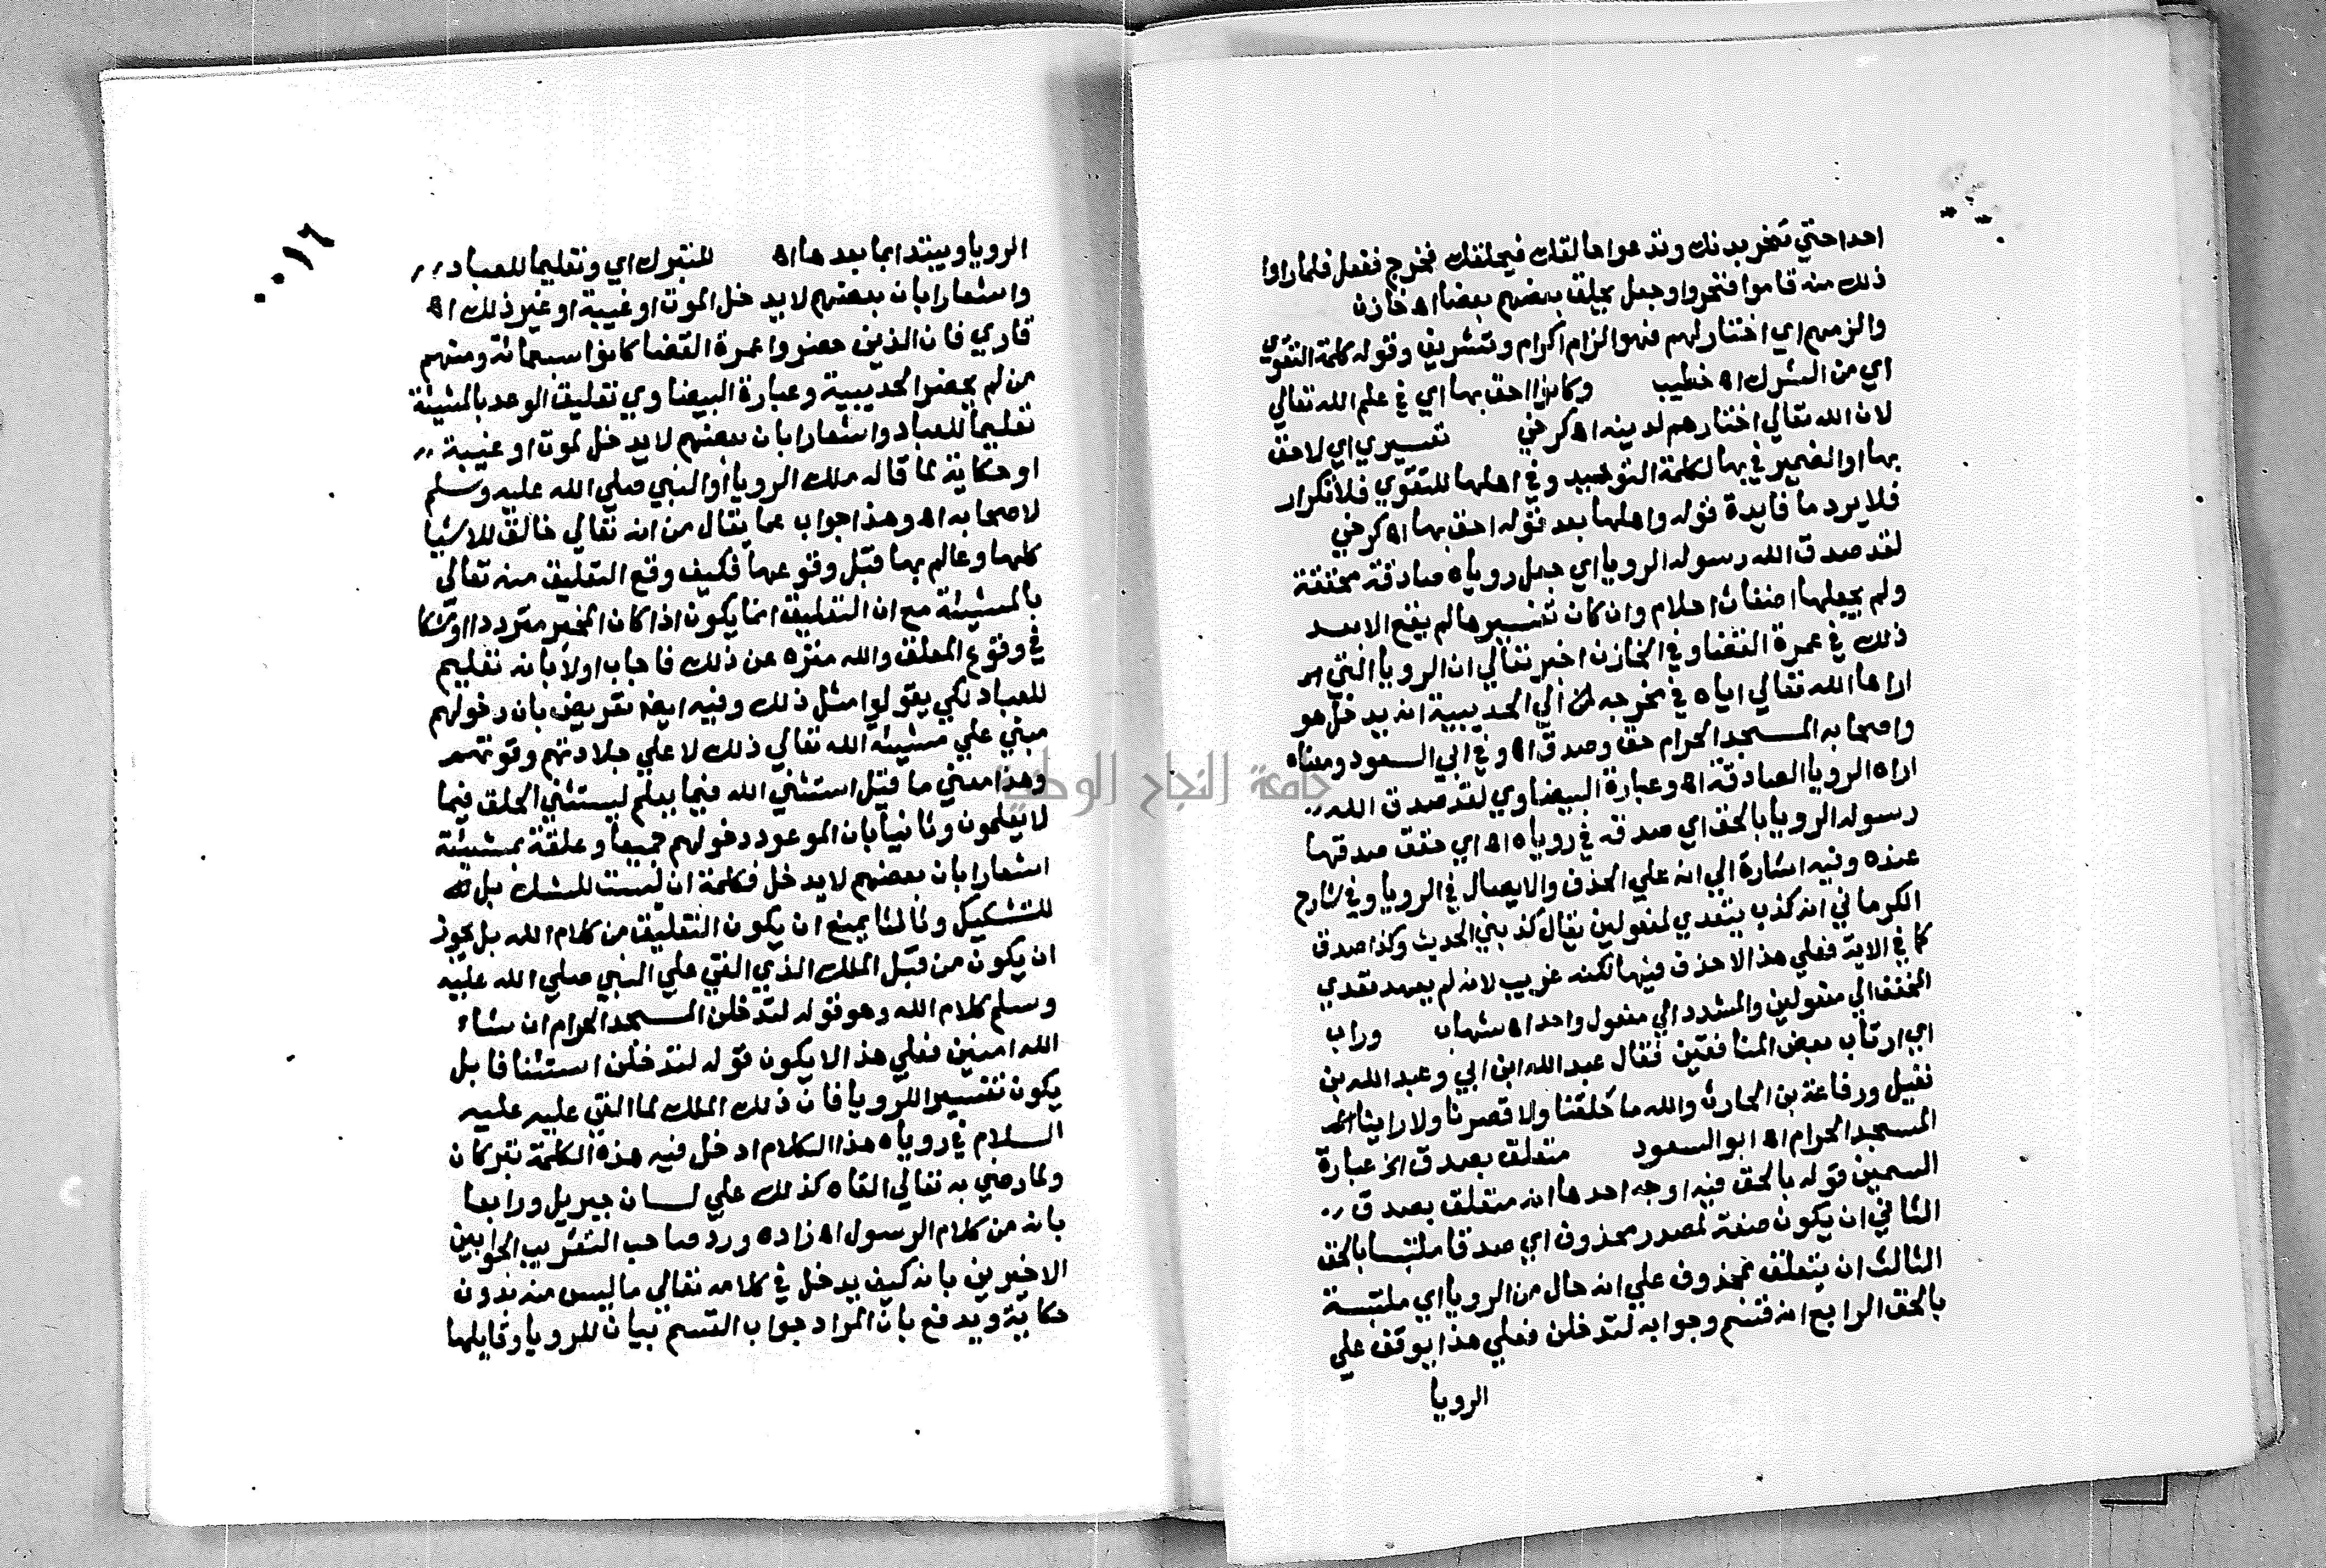 احدا حتي تنحر بدنك وتدعوا حالقك فيحلقك فخرج ففعل فلما راوا
ذلك منه قاموا فنحروا وجعل يحلق بعضهم بعضا اه خازن
والزمهم اي اختار لهم فهو الزام اكرام وتشريف وقوله كلمة التقوي
اي من الشرك اه خطيب وكانوا احق بها اي في علم الله تعالي
لان الله تعالي اختارهم لدينه اه كرخي تفسيري اي لاحق
بها او الضمير في بها لكلمة التوحيد وفي اهلها للتقوي فلا تكرار
فلا يرد ما فايدة قوله واهلها بعد قوله احق بها اه كرخي
لقد صدق الله رسوله الرويا اي جعل روياه صادقة محققة
ولم يجعلها اضغاث احلام وان كان تفسيرها لم يقع الا بعد
ذلك في عمرة القضا وفي الخازن اخبر تعالي ان الرويا التي
اراها الله تعالي اياه في مخرجه الي الحديبية انه يدخل هو
واصحابه المسجد الحرام حق وصدق اه وفي ابي السعود ومعناه
اراه الرويا الصادقة اه وعبارة البيضاوي لقد صدق الله
رسوله الرويا بالحق اي صدقه في روياه اه اي حقق صدقها
عنده وفيه اشارة الي انه علي الحذف والايصال في الرويا وفي شارح
الكرماني انه كذب يتعدي لمفعولين يقال كذبني الحديث وكذا صدق
كما في الاية فعلي هذا لا حذف فيها لكنه غريب لانه لم يعهد تعدي
المخفف الي مفعولين والمشدد الي مفعول واحد اه شهاب وراب
اي ارتاب بعض المنافقين فقال عبد الله ابن ابي وعبد الله بن
نفيل ورفاعة بن الحارث والله ما حلقنا ولا قصرنا ولا راينا
المسجد الحرام اه ابو السعود متعلق بصدق الخ عبارة
السمين قوله بالحق فيه اوجه احدها انه متعلق بصدق
الثاني ان يكون صفة لمصدر محذوف اي صدقا ملتبسا بالحق
الثالث ان يتعلق بمحذوف علي انه حال من الرويا اي ملتبسة
بالحق الرابع انه قسم وجوابه لتدخلن فعلي هذا يوقف علي
الرويا
٠٠١٦
الرويا ويبتدا بما بعدها اه للتبرك اي وتعليما للعباد
واشعارا بان بعضهم لا يدخل لموت او غيبة او غير ذلك اه
قاري فان الذين حضروا عمرة القضا كانوا سبعمائة ومنهم
من لم يحضر الحديبية وعبارة البيضاوي تعليق الوعد بالمشيئة
تعليما للعباد واشعارا بان بعضهم لا يدخل لموت او غيبة
او حكاية لما قاله ملك الرويا او النبي صلي الله عليه وسلم
لاصحابه اه وهذا جواب عما يقال من انه تعالي خالق للاشيا
كلها وعالم بها قبل وقوعها فكيف وقع التعليق منه تعالي
بالمشيئة مع ان التعليق انما يكون اذا كان المخبر مترددا او شكا
في وقوع المعلق والله منزه عن ذلك فاجاب اولا بانه تعليم
للعباد لكي يقولوا مثل ذلك وفيه ايضا تعريض بان دخولهم
مبني علي مشيئة الله تعالي ذلك لا علي جلادتهم وقوتهم
وهذا معني ما قيل استثني الله فيما يعلم ليستثني الخلق فيما
لا يعلمون وثانيا بان الموعود دخولهم جميعا وعلقه بمشيئة
اشعارا بان بعضهم لا يدخل فكلمة ان ليست للشك بل
للتشكيك وثالثا يمنع ان يكون التعليق من كلام الله بل يجوز
ان يكون من قبل الملك الذي القي علي النبي صلي الله عليه
وسلم كلام الله وهو قوله لتدخلن المسجد الحرام ان شاء
الله امنين فعلي هذا لا يكون قوله لتدخلن استئنافا بل
يكون تفسيرا للرويا فان ذلك الملك لما القي عليه عليه
السلام في روياه هذا الكلام ادخل فيه هذه الكلمة تبركا
ولما رضي به تعالي القاه كذلك علي لسان جبريل ورابعا
بانه من كلام الرسول اه زاده ورد صاحب التقريب الجوابين
الاخيرين بانه كيف يدخل في كلامه تعالي ما ليس منه بدون
حكاية ويدفع بان المراد جواب القسم بيان للرويا وقايلها
جامعة النجاح الوطنية